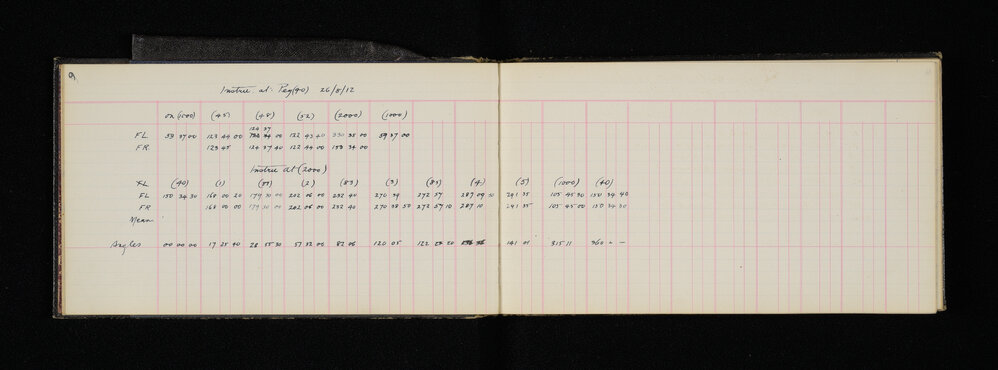 9
Instru. at Peg (40) 26/8/12
on (1000) (45) (48) (52) (2000) (1000)
124 37
FL 59 37 00 123 44 00 34 00 122 43 40 35 00 59 37 00
FR 123 45 124 37 40 122 44 00 153 34 00
Instru at (2000)
(40) (1) (2) (83) (3) (83) (4) (5) (1000) (40)
FL 150 34 30 168 00 20 179 30 00 202 06 00 232 40 270 39 272 57 287 09 50 291 35 105 45 30 150 34 40
FR 168 00 00 179 30 00 202 06 00 232 40 270 38 50 272 57 10 287 10 291 35 105 45 00 150 34 30
Mean
Angles 00 00 00 17 25 40 28 55 30 51 32 00 82 06 120 05 122 20 141 01 315 11 360 - -